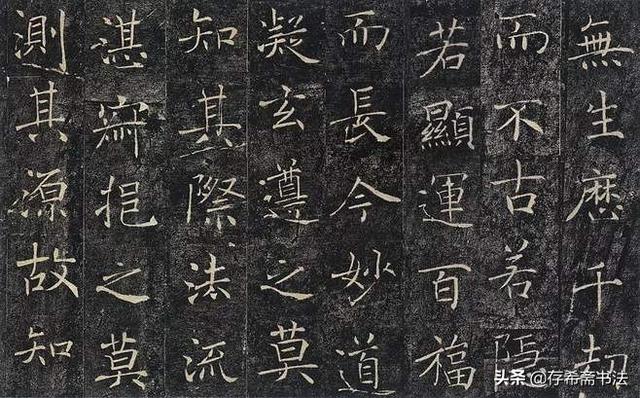 無生歷千劫
而不古若隱
若顯運百福
而長今妙道
凝玄遵之莫
知其際法流
湛寂挹之莫
測其源故知
头条 @存希斋书法